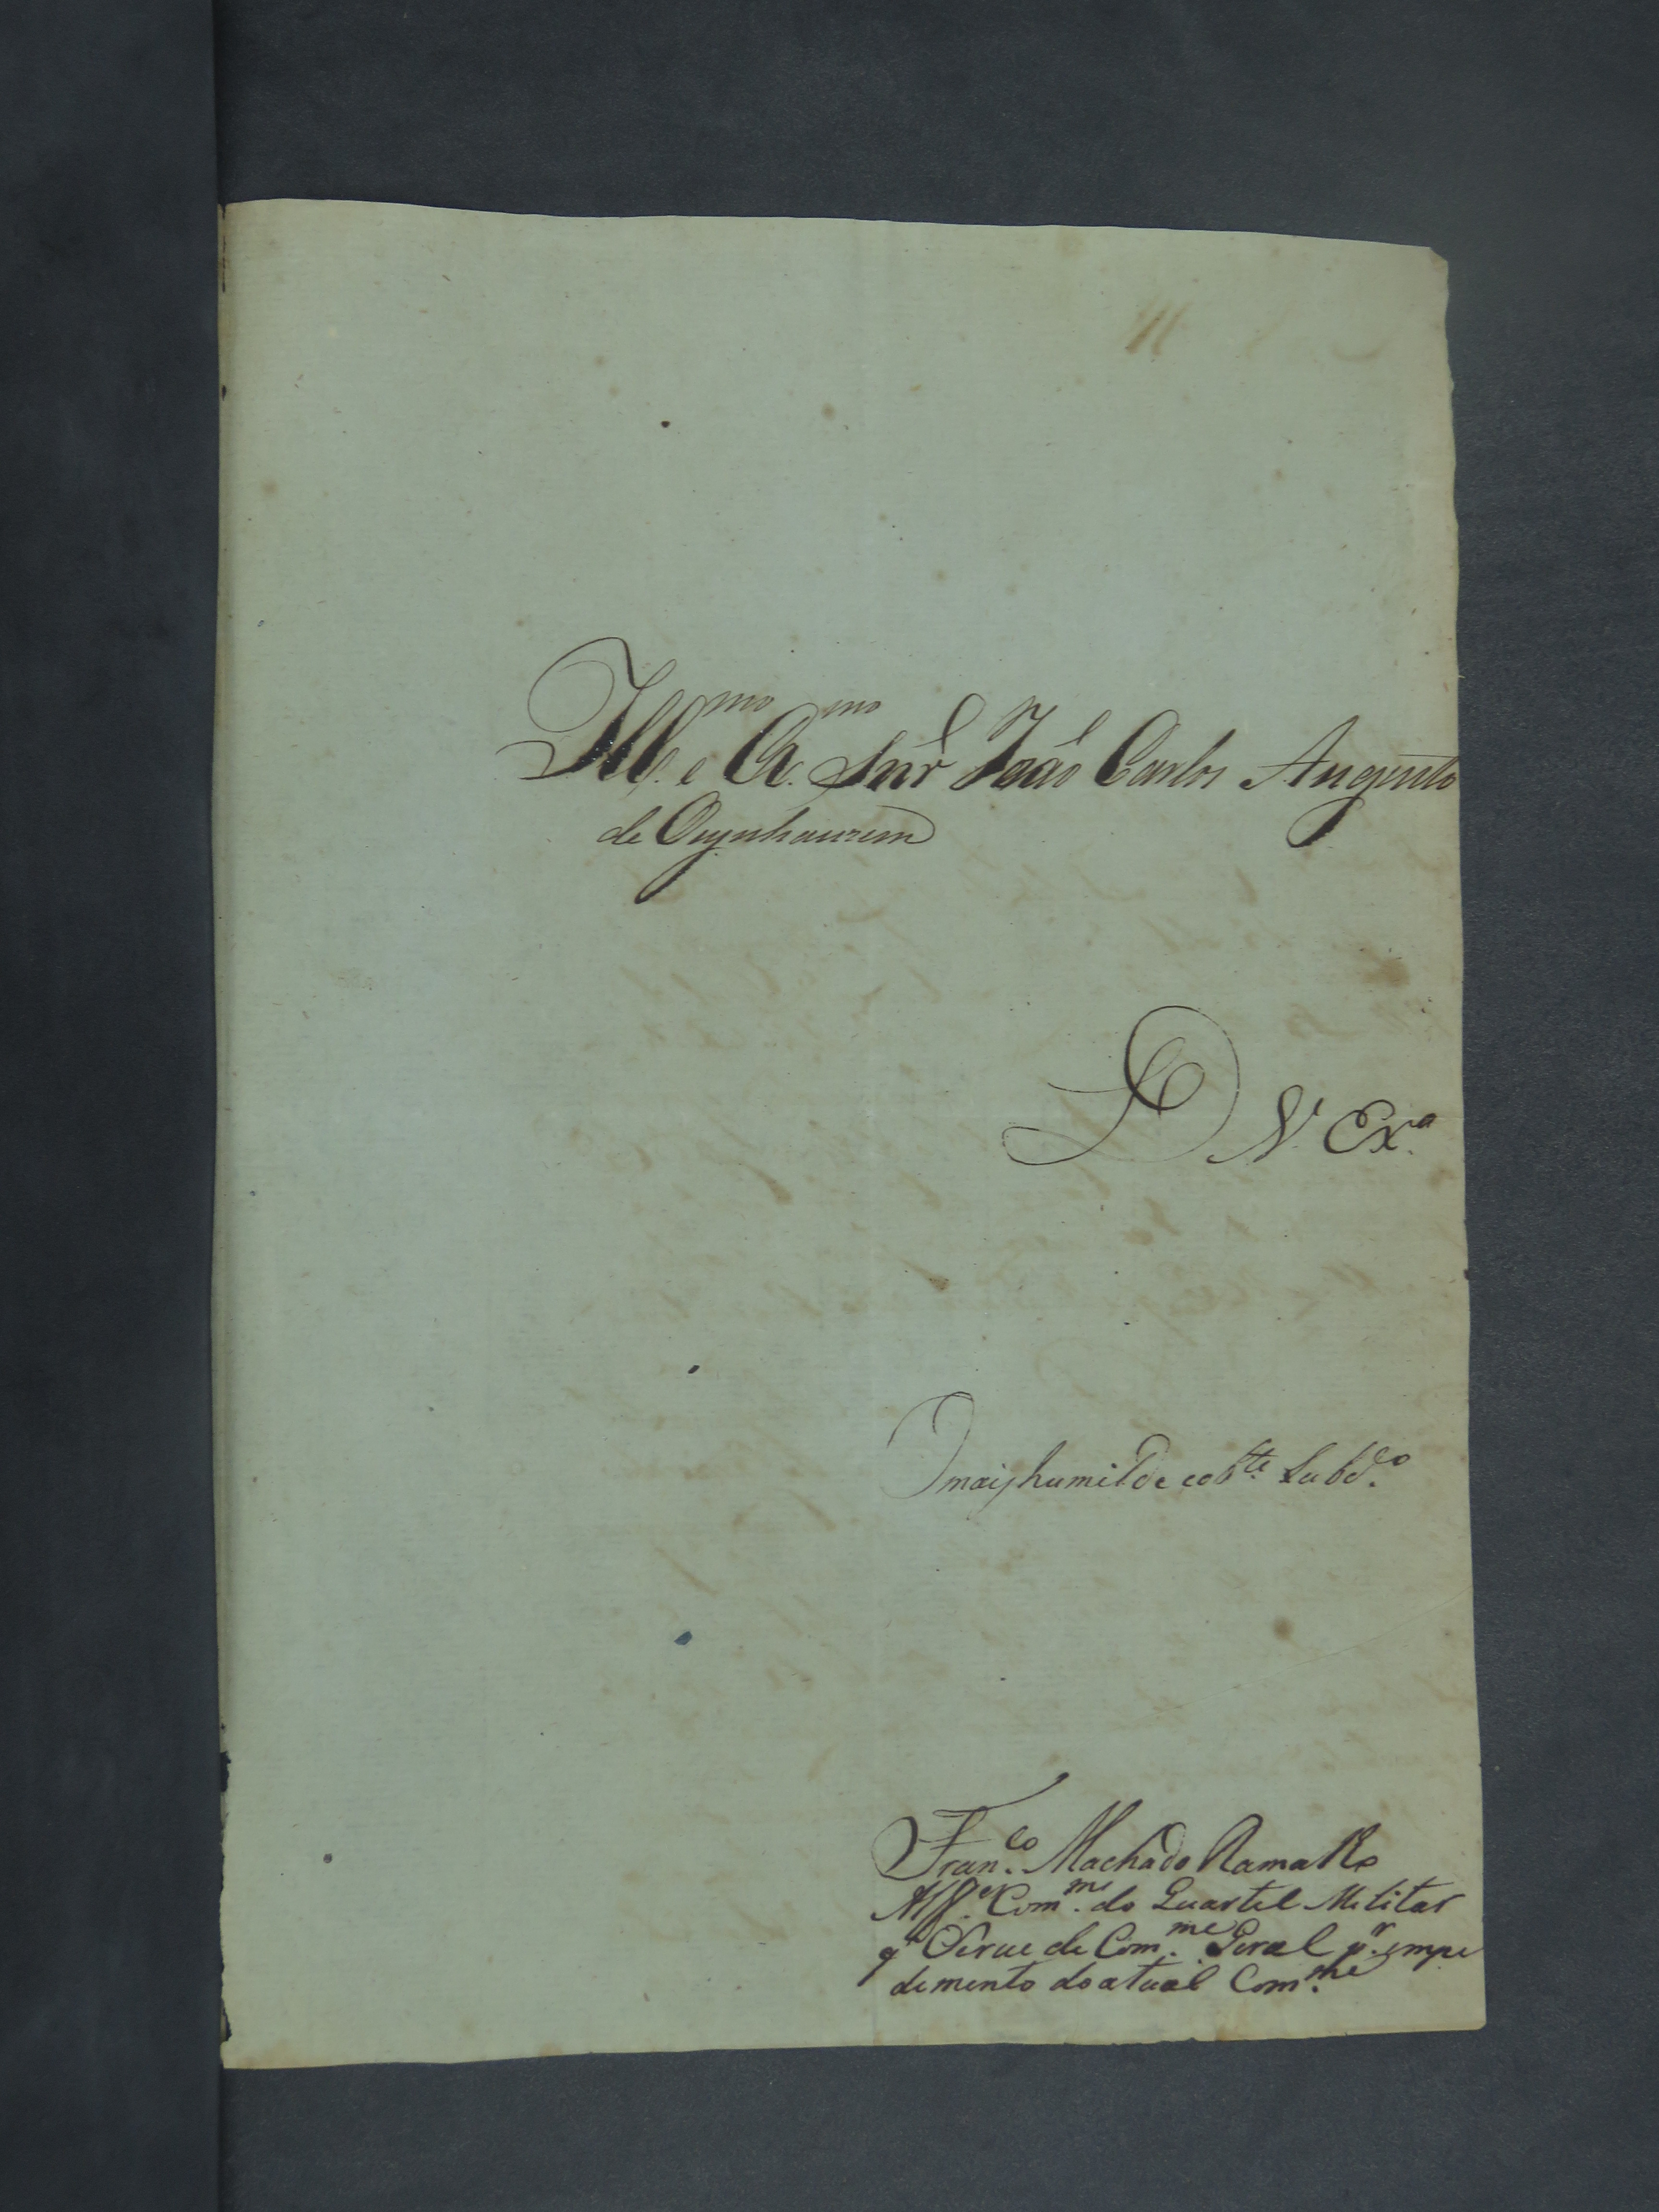 Ill.mo e Ex.mo Snr João Carlos Augusto
de Oeynhaussem
D V. Ex.a
O mais humilde e ob.te Subd.o
Fran.co Machado Ramalho
Alff.es Com.me do Quartel Militar
q' Serve de Com.me Geral p.r empe
dimento do atual Com.me